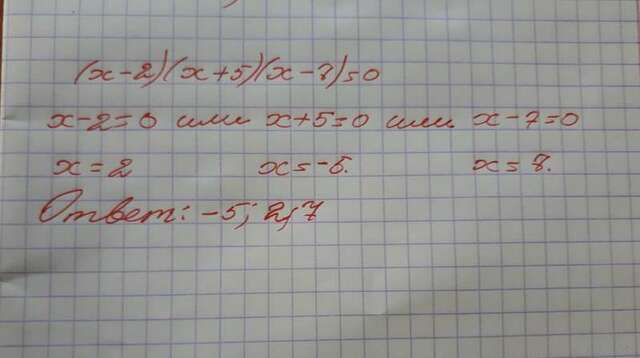 (x-2)(x+5)(x-7)=0
x-2=0 или x+5=0 или x-7=0
x=2 x=-5. x=7.
Ответ: -5; 2; 7